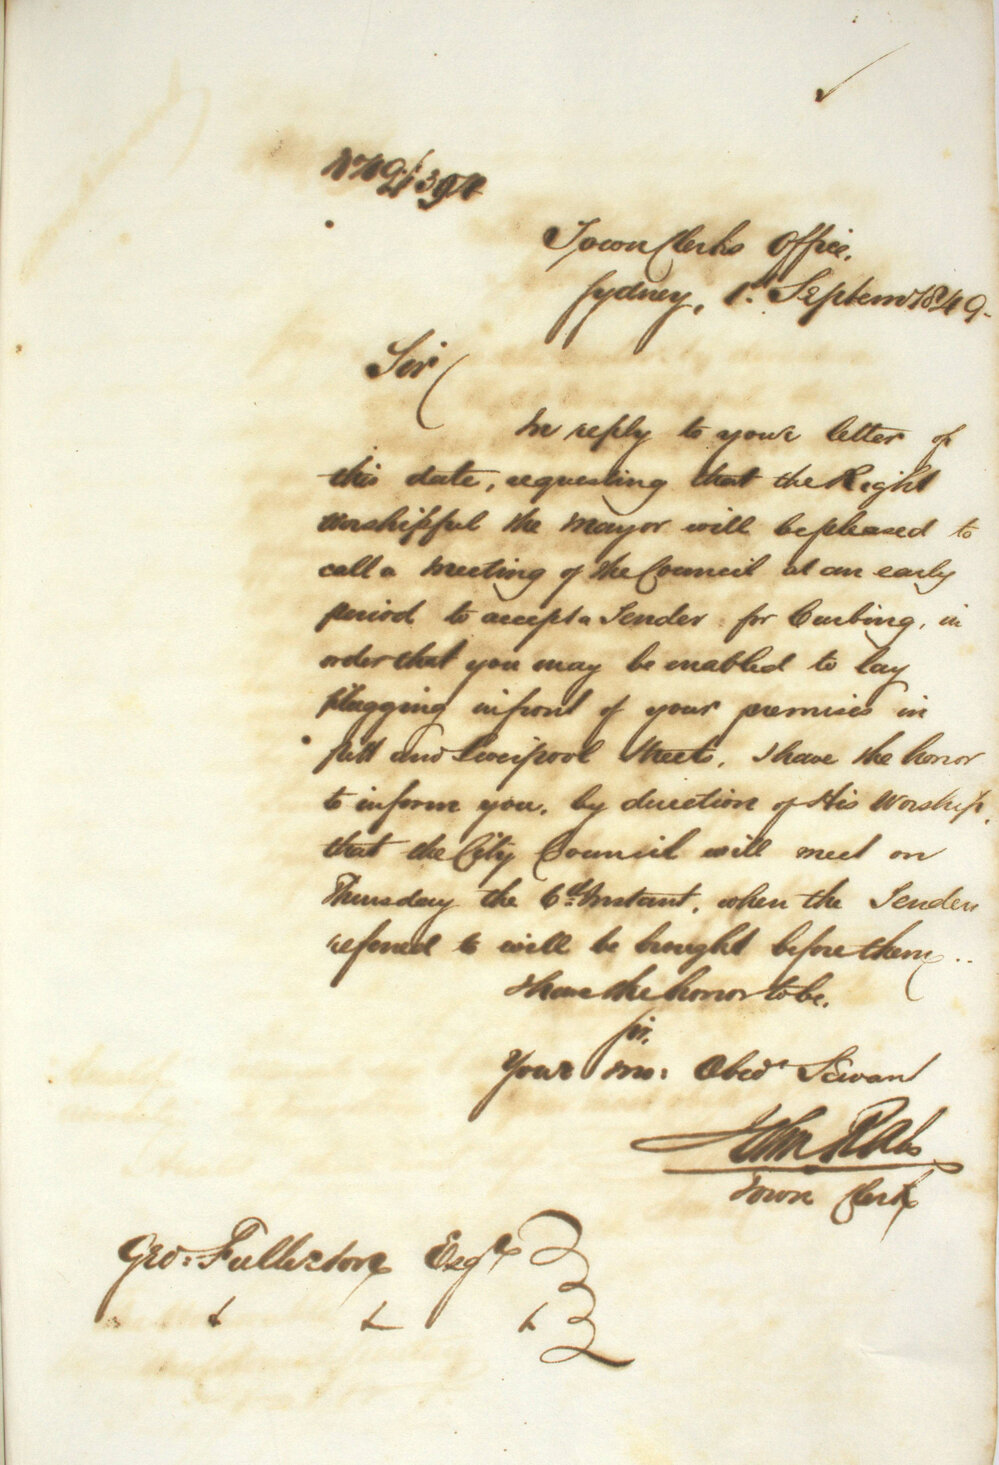 Town Clerks Office.
Sydney, 1st Septemr 1849.
Sir
In reply to your letter of
this date, requesting that the Right
Worshipful the Mayor will be pleased to
call a meeting of the Council at an early
period to accept a Tender for Curbing, in
order that you may be enabled to lay
flagging in front of your premises in
Pitt and Liverpool Streets, I have the honor
to inform you, by direction of His Worship,
that the City Council will meet on
Thursday the 6th Instant, when the Tender
referred to will be brought before them..
I have the honor to be,
Sir,
Your mo: Obedt Servant
John
Town Clerk
Geo: Fullerton Esqre
& & &